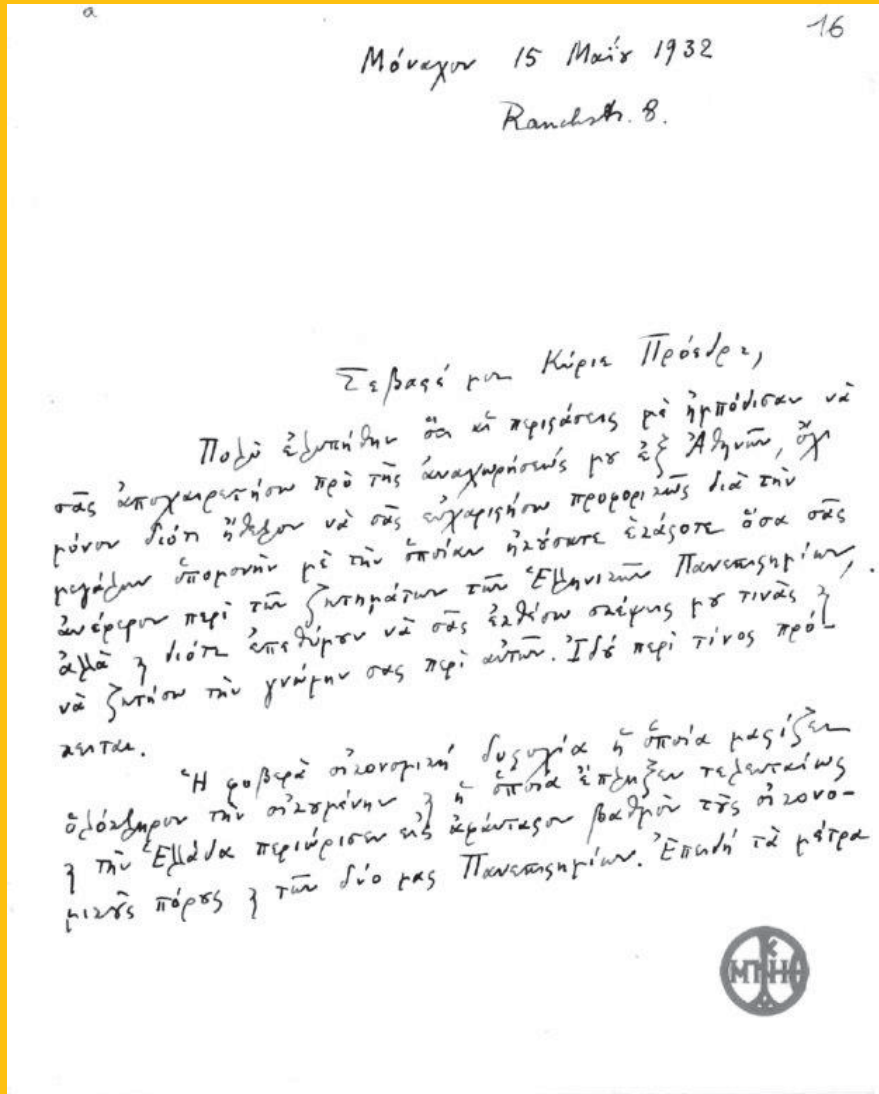 a
16
Μόναχον 15 Μαΐου 1932
Rauchstr. 8.
Σεβαστέ μου Κύριε Πρόεδρε,
Πολὺ ἐλυπήθην ὅτι αἱ περιστάσεις μὲ ἠμπόδισαν νὰ
σᾶς ἀποχαιρετήσω πρὸ τῆς ἀναχωρήσεώς μου ἐξ Ἀθηνῶν, ὄχι
μόνον διότι ἤθελον νὰ σᾶς εὐχαριστήσω προφορικῶς διὰ τὴν
μεγάλην ὑπομονὴν μὲ τὴν ὁποίαν ἠκούσατε ἑκάστοτε ὅσα σᾶς
ἀνέφερον περὶ τῶν ζητημάτων τῶν Ἑλληνικῶν Πανεπιστημίων,
ἀλλὰ ϗ διότι ἐπεθύμουν νὰ σᾶς ἐκθέσω σκέψεις μου τινὰς ϗ
νὰ ζητήσω τὴν γνώμην σας περὶ αὐτῶν. Ἰδοὺ περὶ τίνος πρό-
κειται.
Ἡ φοβερὰ οἰκονομικὴ δυστυχία ἡ ὁποία μαστίζει
ὁλόκληρον τὴν οἰκουμένην ϗ ἡ ὁποία ἔπληξεν τελευταίως
ϗ τὴν Ἑλλάδα περιώρισεν εἰς ἀφάνταστον βαθμὸν τοὺς οἰκονο-
μικοὺς πόρους ϗ τῶν δύο μας Πανεπιστημίων. Ἐπειδὴ τὰ μέτρα